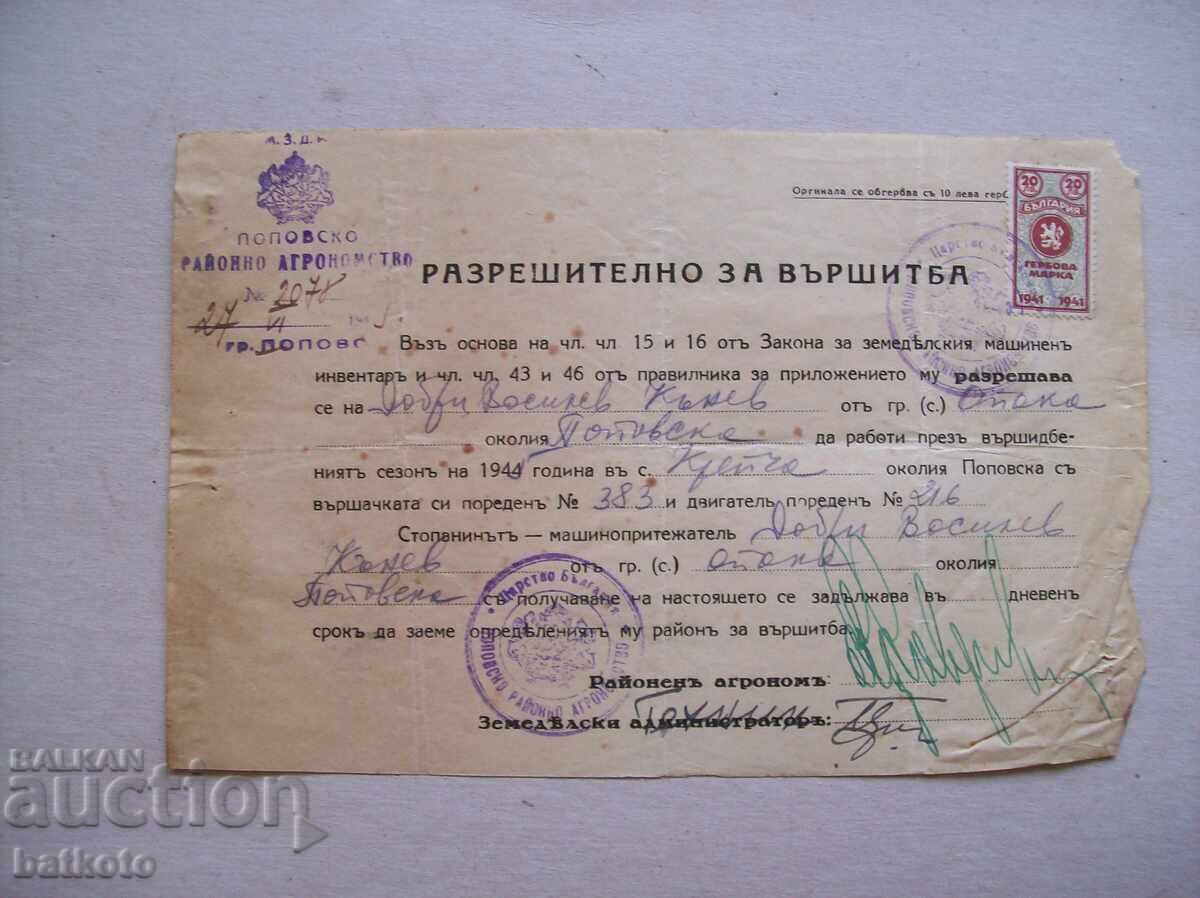 М. З. Д. И.
ПОПОВСКО
РАЙОННО АГРОНОМСТВО
№ 2078
27 VI
гр. ПОПОВО
Оргинала се обгербва съ 10 лева герб
20 20
БЪЛГАРИЯ
ГЕРБОВА
МАРКА
1941 1941
РАЗРЕШИТЕЛНО ЗА ВЪРШИТБА
Възъ основа на чл. чл. 15 и 16 отъ Закона за земедѣлския машиненъ
инвентаръ и чл. чл. 43 и 46 отъ правилника за приложението му разрешава
се на Добри Василев Кънев отъ гр. (с.) Опака
околия Поповска да работи презъ вършидбе-
ниятъ сезонъ на 194 година въ с. Крепча околия Поповска съ
вършачката си пореденъ № 383 и двигатель пореденъ № 216
Стопанинътъ — машинопритежатель Добри Василев
Кънев отъ гр. (с.) Опака околия
Поповска съ получаване на настоящето се задължава въ дневенъ
срокъ да заеме опредѣлениятъ му районъ за вършитба.
Царство България
ПОПОВСКО РАЙОННО АГРОНОМСТВО
Районенъ агрономъ:
Земедѣлски администраторъ:
BALKAN
auction
batkoto